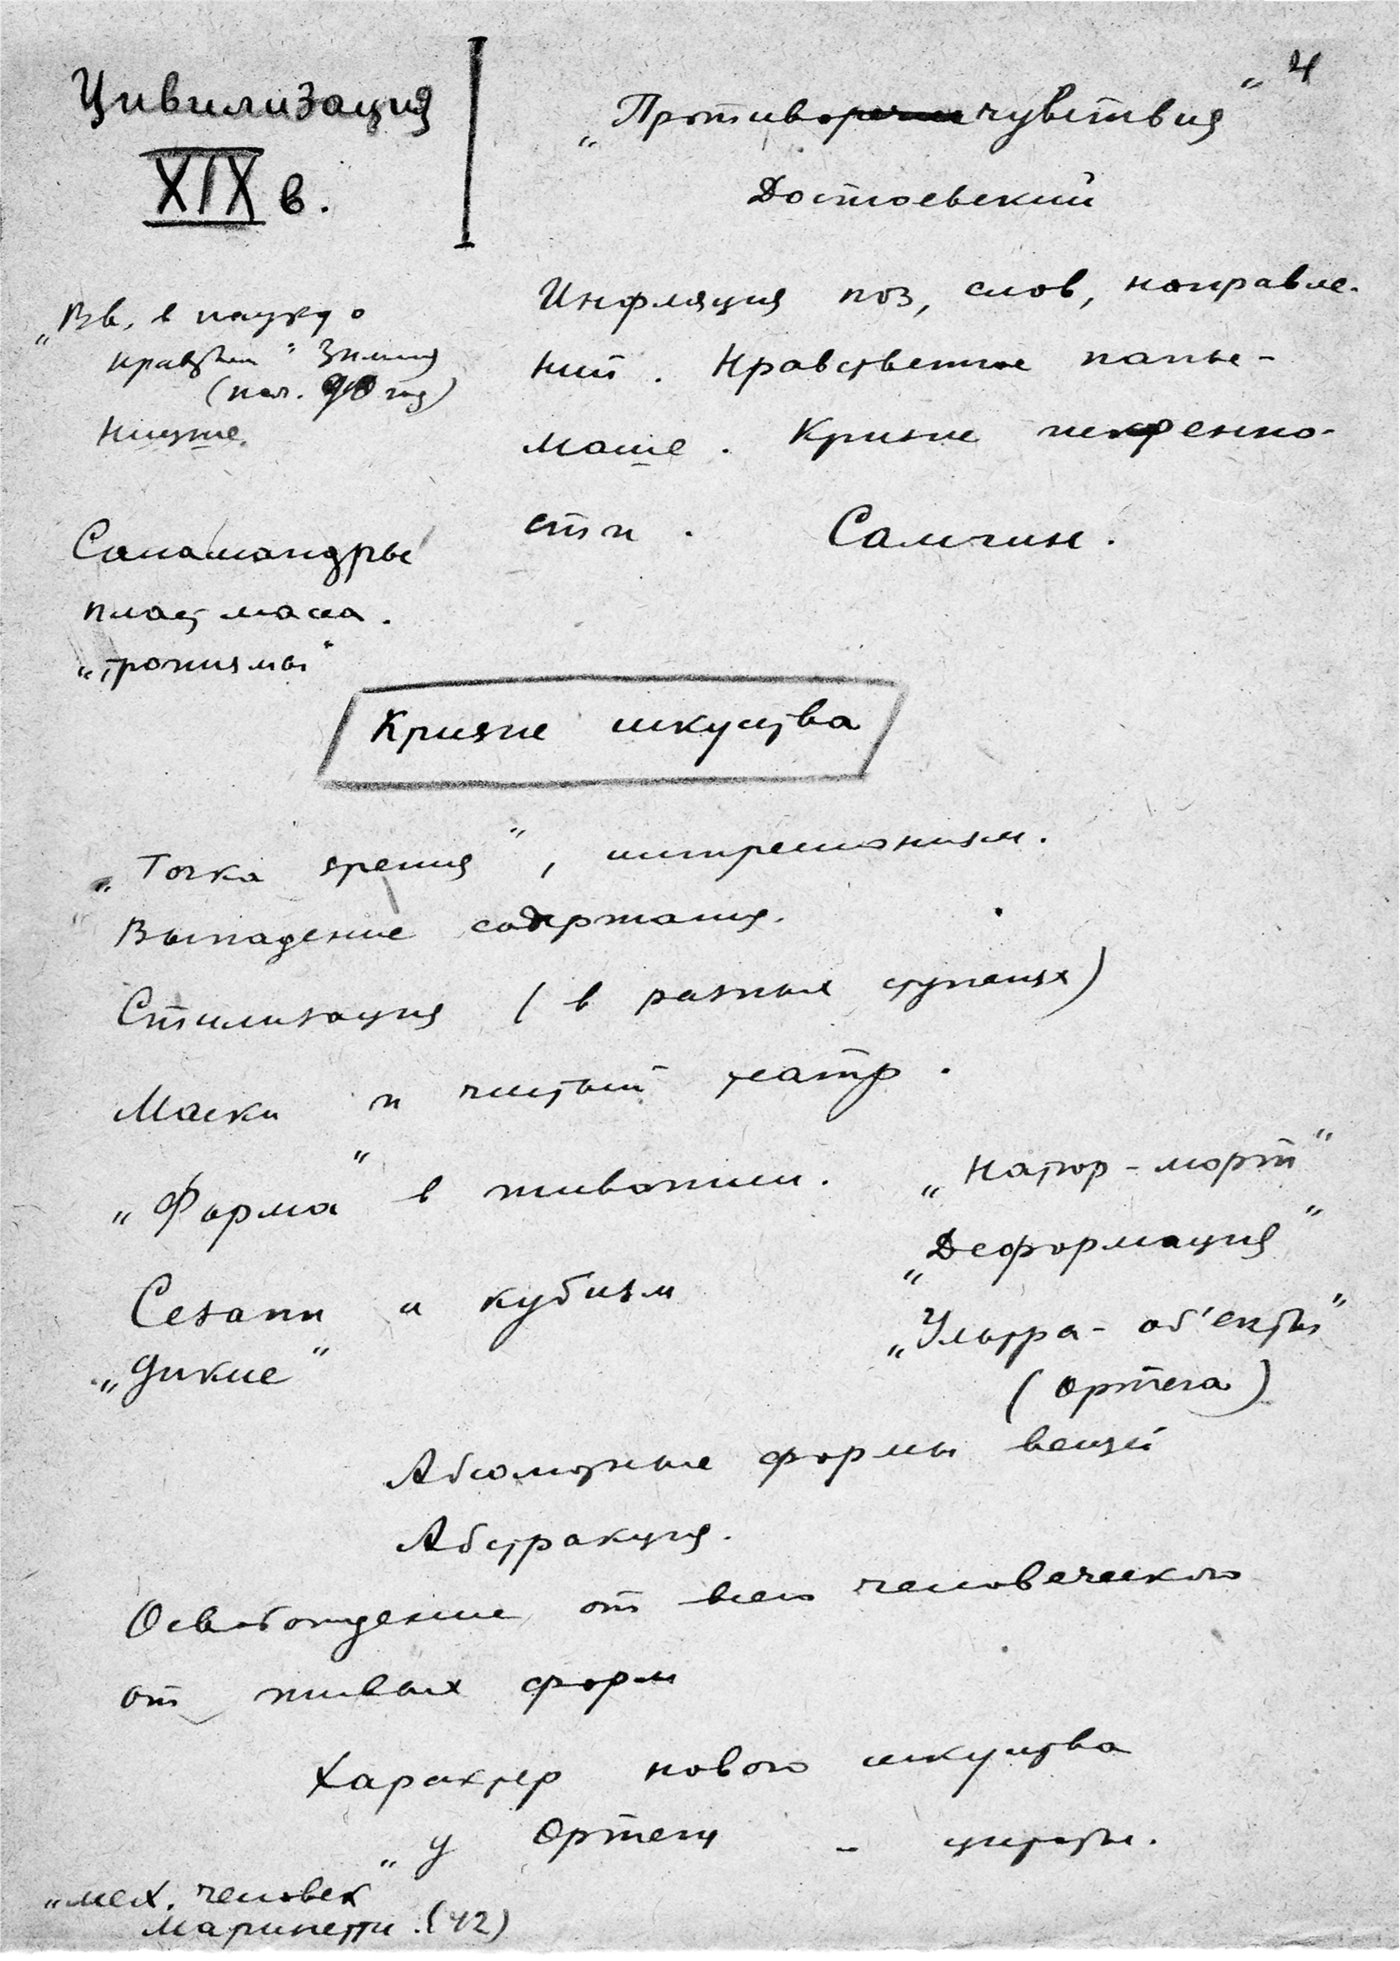 4
Цивилизация
XIX в.
„Противоречиечувствия"
Достоевский
„Вв. в науку о
нравств." Зиммель
(нач. 90 год)
Ницше.
Инфляция поз, слов, направле-
ний. Нравственное папье-
маше. Кризис искренно-
сти. Самгин.
Саламандры
пластмасса.
„тропизмы"
Кризис искусства
„Точка зрения", импрессионизм.
Выпадение содержания.
Стилизация (в разных ступенях)
Маски и чистый театр.
„Форма" в живописи. „Натюр-морт"
„Деформация"
Сезанн и кубизм
„Ультра-об'екты"
„Дикие"
(Ортега)
Абсолютные формы вещей
Абстракция.
Освобождение от всего человеческого
от живых форм
Характер нового искусства
у Ортеги – цитаты.
„мех. человек"
Маринетти. (42)